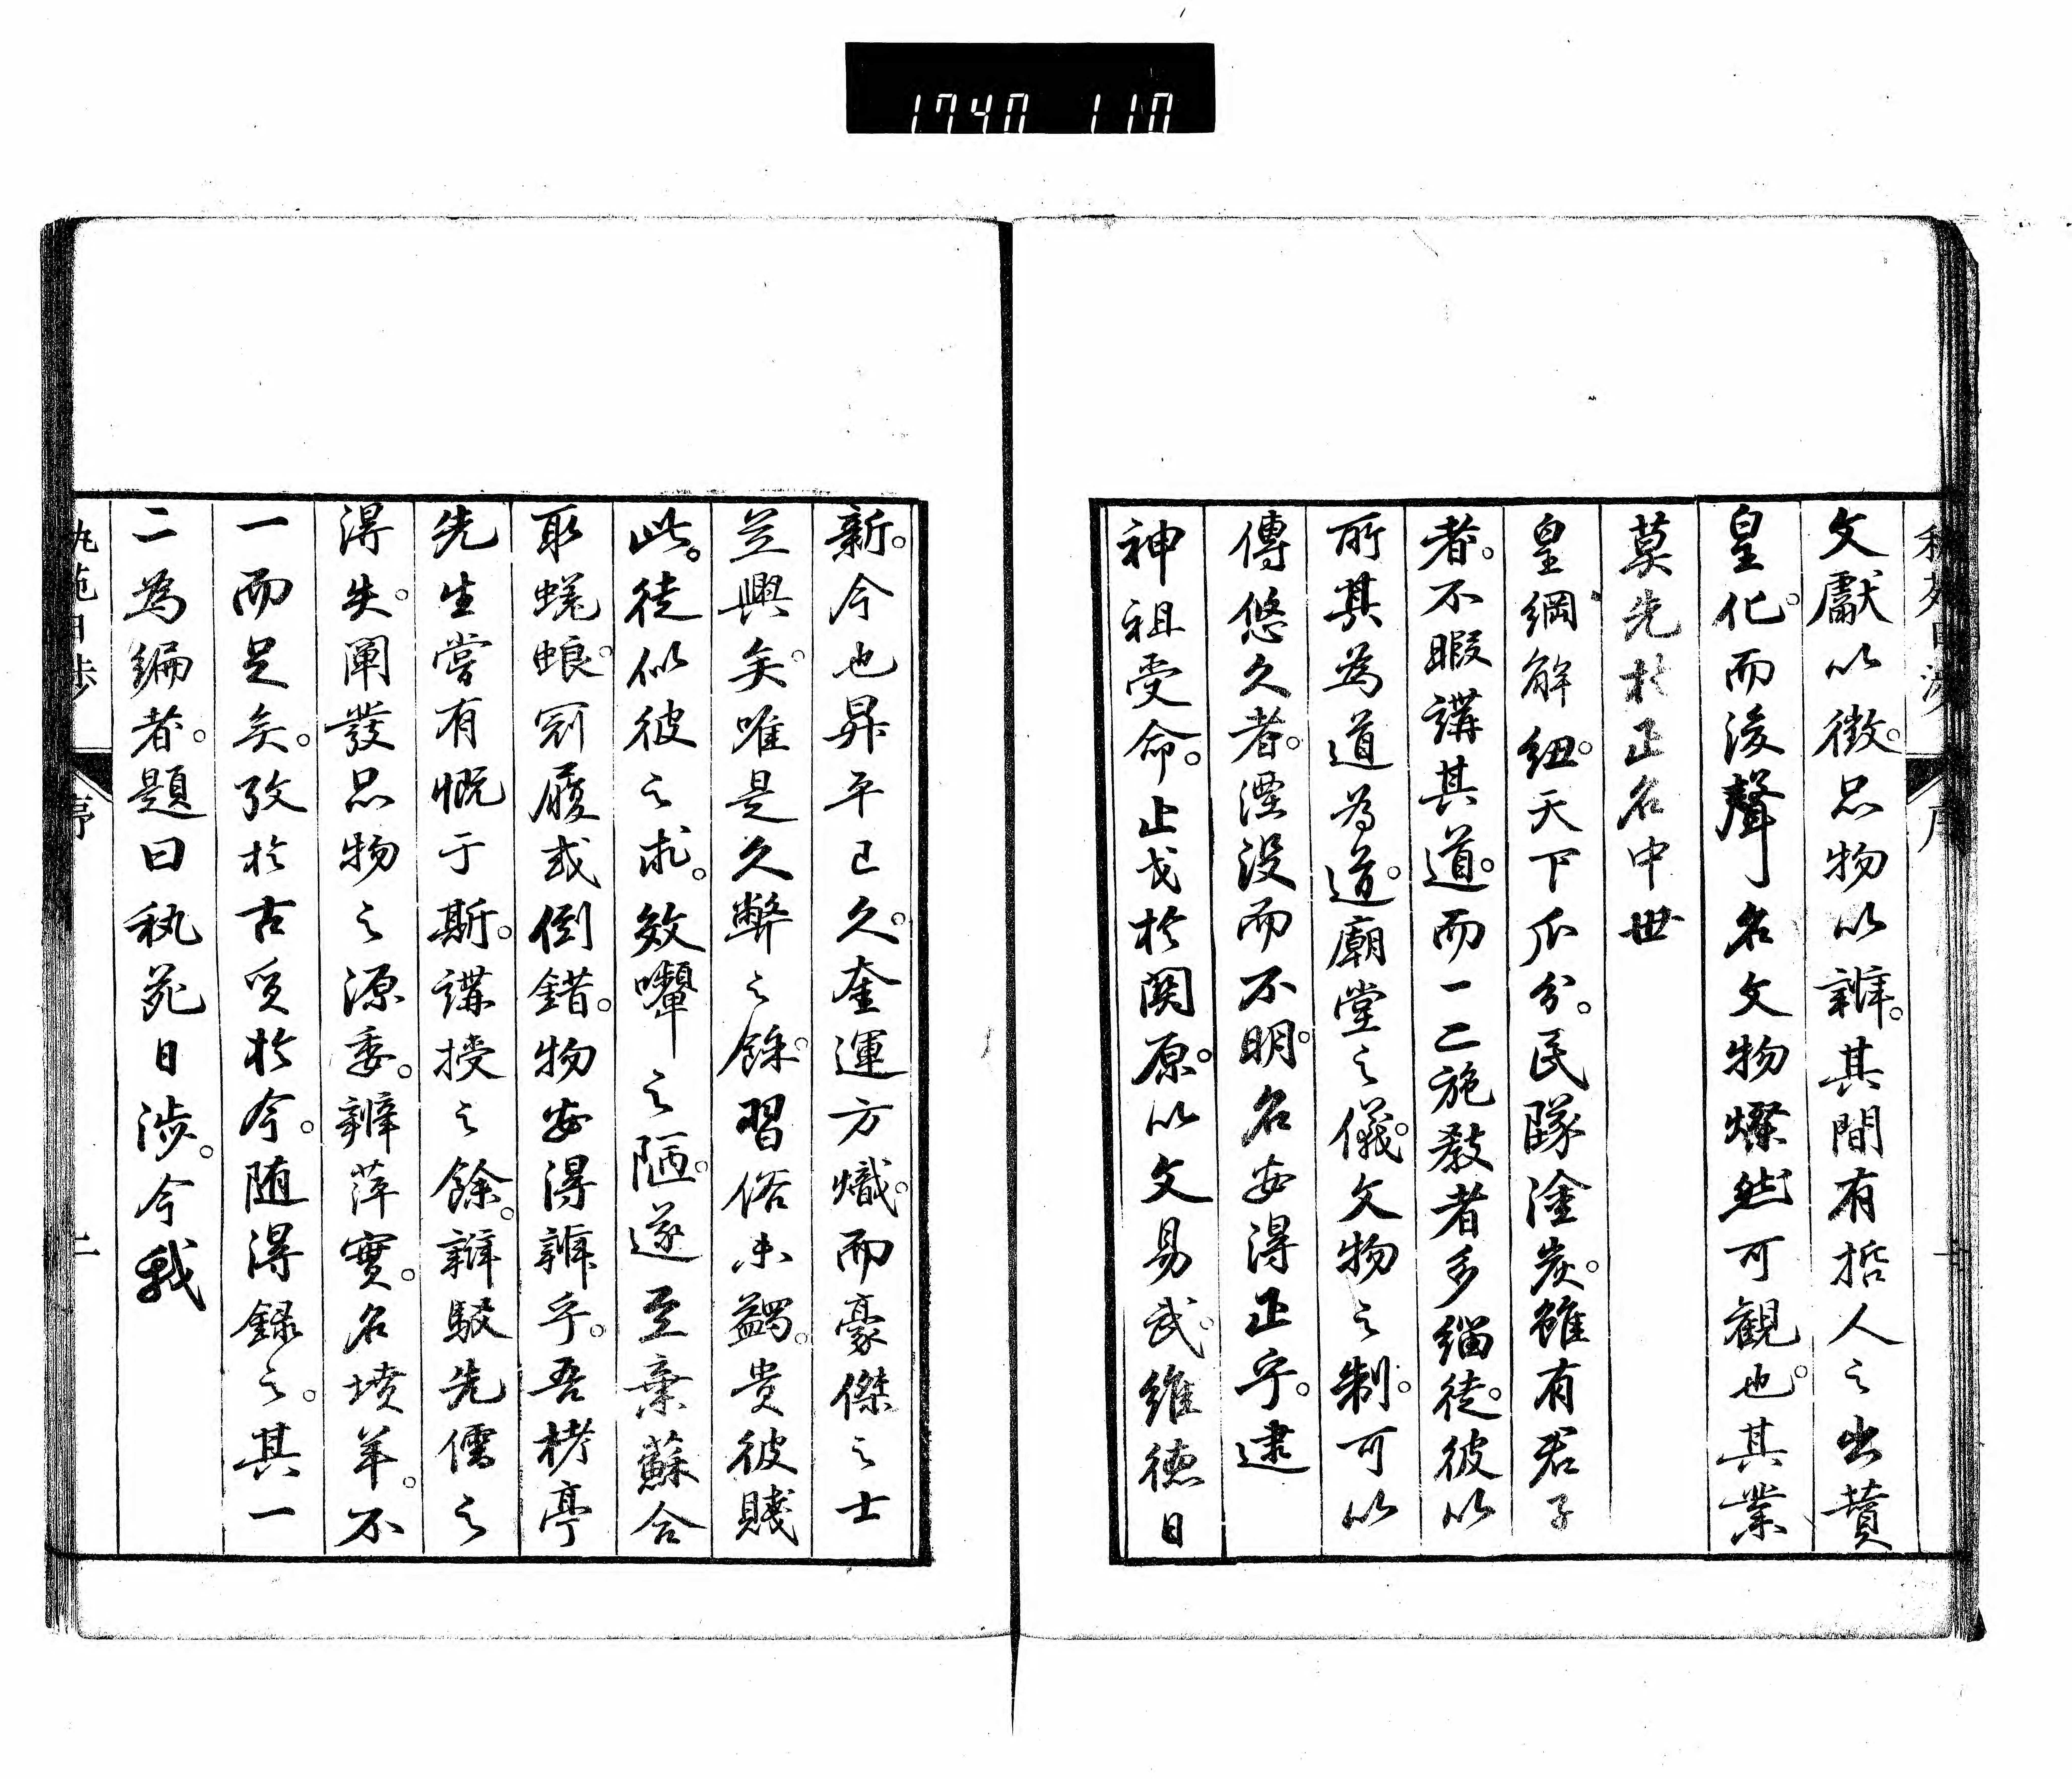 1740 110
文獻以徴。品物以辨。其間有哲人之出賁
皇化。而後聲名文物燦然可觀也。其業
莫先於正名中世
皇綱解紐。天下瓜分。民墜塗炭。雖有君子
者。不暇講其道。而一二施教者多緇徒。彼以
所其為道為道。廟堂之儀。文物之制。可以
傳悠久者。湮没而不明。名安得正乎。逮
神祖受命。止戈於関原。以文易武。維德日
新。今也昇平已久。奎運方熾。而豪傑之士
並興矣。唯是久弊之餘。習俗未蠲。貴彼賤
此。徒似彼之求。效嚬之陋。遂至棄蘇合
取蜣蜋。冠履或倒錯。物安得辨乎。吾栲亭
先生嘗有慨于斯。講授之餘。辯駁先儒之
得失。闡發品物之源委。辨萍實。名墳羊。不
一而足矣。攷於古質於今。随得録之。其一
二為編者。題曰秇苑日渉。今我
秇苑日渉 序 二